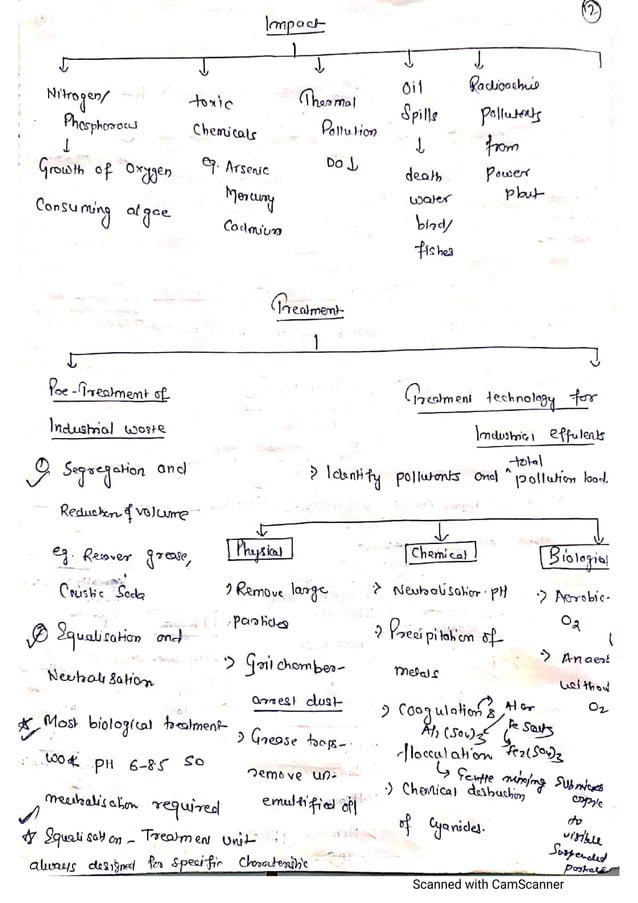 12
Impact
Nitrogen/
Phosphorous
↓
Growth of Oxygen
Consuming algae
toxic
Chemicals
eg. Arsenic
Mercury
Cadmium
Thermal
Pollution
DO↓
Oil
Spills
↓
death
water
bird/
fishes
Radioactive
pollutents
from
power
plant
Treatment
Pre-Treatment of
Industrial waste
① Segregation and
Reduction of volume
eg. Recover grease,
Coustic Soda
② Equalisation and
Neutralisation
* Most biological treatment
work PH 6-8.5 so
neutralisation required
* Equalisation - Treatment unit
always designed for specific
Treatment technology for
Industrial effulents
> Identify pollutants and total pollution load.
Physical
> Remove large
particles
> Grit chamber-
arrest dust
> Grease traps-
remove un-
emultified oil
Chemical
> Neutralisation. pH
> Precipitation of
metals
> Coagulation & Al or Fe Salts
Al2(SO4)3 Fe2(SO4)3
flocculation
↳ Gentle mixing Submicroscopic
to
visible
Suspended
> Chemical destruction
of Cyanides.
Biological
> Aerobic-
O2
> Anaero
without
O2
Scanned with CamScanner